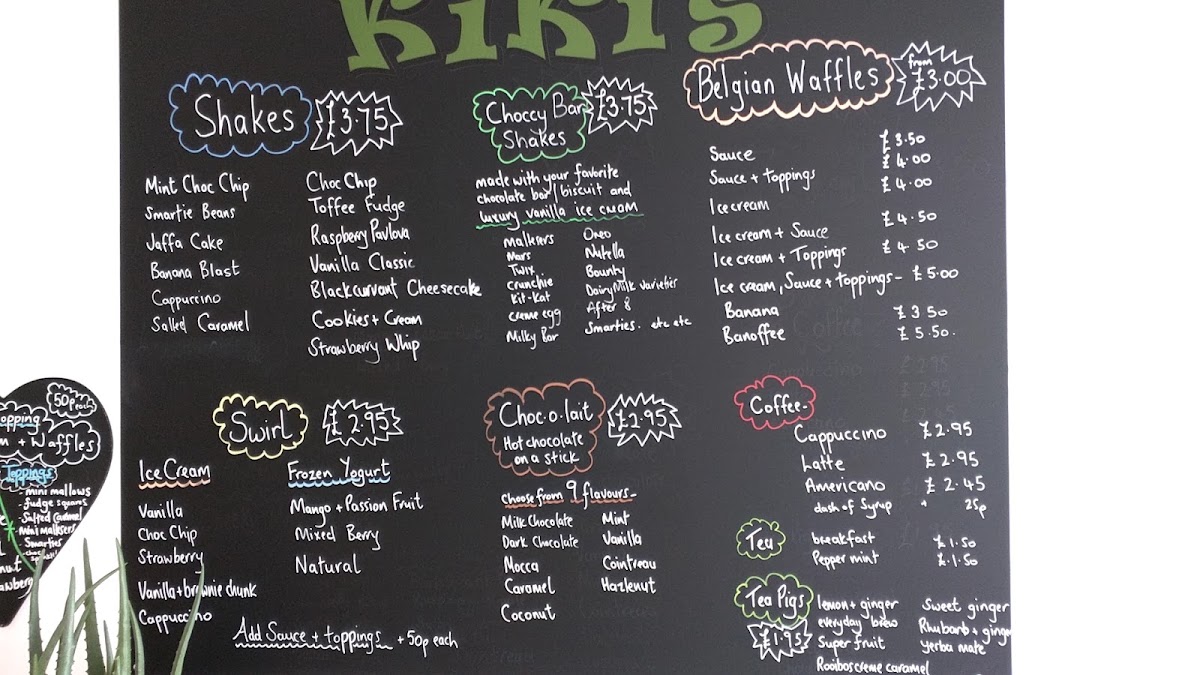 KiKi's
Shakes £3.75
Mint Choc Chip
Smartie Beans
Jaffa Cake
Banana Blast
Cappuccino
Salted Caramel
Choc Chip
Toffee Fudge
Raspberry Pavlova
Vanilla Classic
Blackcurrant Cheesecake
Cookies + Cream
Strawberry Whip
Choccy Bar £3.75
Shakes
made with your favorite
chocolate bar/biscuit and
luxury vanilla ice cream
maltesers
Mars
Twix
crunchie
Kit-Kat
creme egg
Milky Bar
Oreo
Nutella
Bounty
Dairy Milk varieties
After 8
Smarties. etc etc
Belgian Waffles from
£3.00
Sauce £3.50
Sauce + toppings £4.00
Ice cream £4.00
Ice cream + Sauce £4.50
Ice cream + Toppings £4 50
Ice cream, Sauce + toppings - £5.00
Banana £3 50
Banoffee £5.50.
Swirl £2.95
Ice Cream
Vanilla
Choc Chip
Strawberry
Vanilla + brownie chunk
Cappuccino
Frozen Yogurt
Mango + Passion Fruit
Mixed Berry
Natural
Add Sauce + toppings + 50p each
Choc.o.lait £2.95
Hot chocolate
on a stick
choose from 9 flavours -
Milk Chocolate
Dark Chocolate
Mocca
Caramel
Coconut
Mint
Vanilla
Cointreau
Hazlenut
Coffee -
Cappuccino £2.95
Latte £2.95
Americano £2.45
dash of Syrup " 25p
Tea
breakfast £1.50
Pepper mint £1.50
Tea Pigs
£1.95
lemon + ginger
everyday brew
Super fruit
Rooibos creme caramel
Sweet ginger
Rhubarb + ginger
yerba mate
50p each
opping
+ Waffles
Toppings
- mini mallows
- fudge squares
- Salted Caramel
- mini maltesers
- Smarties